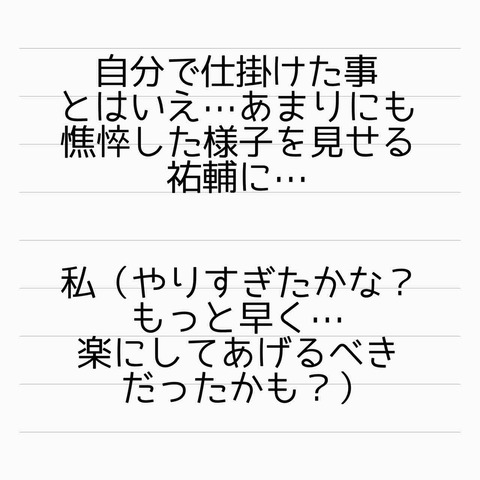 自分で仕掛けた事
とはいえ…あまりにも
憔悴した様子を見せる
祐輔に…
私（やりすぎたかな？
もっと早く…
楽にしてあげるべき
だったかも？）